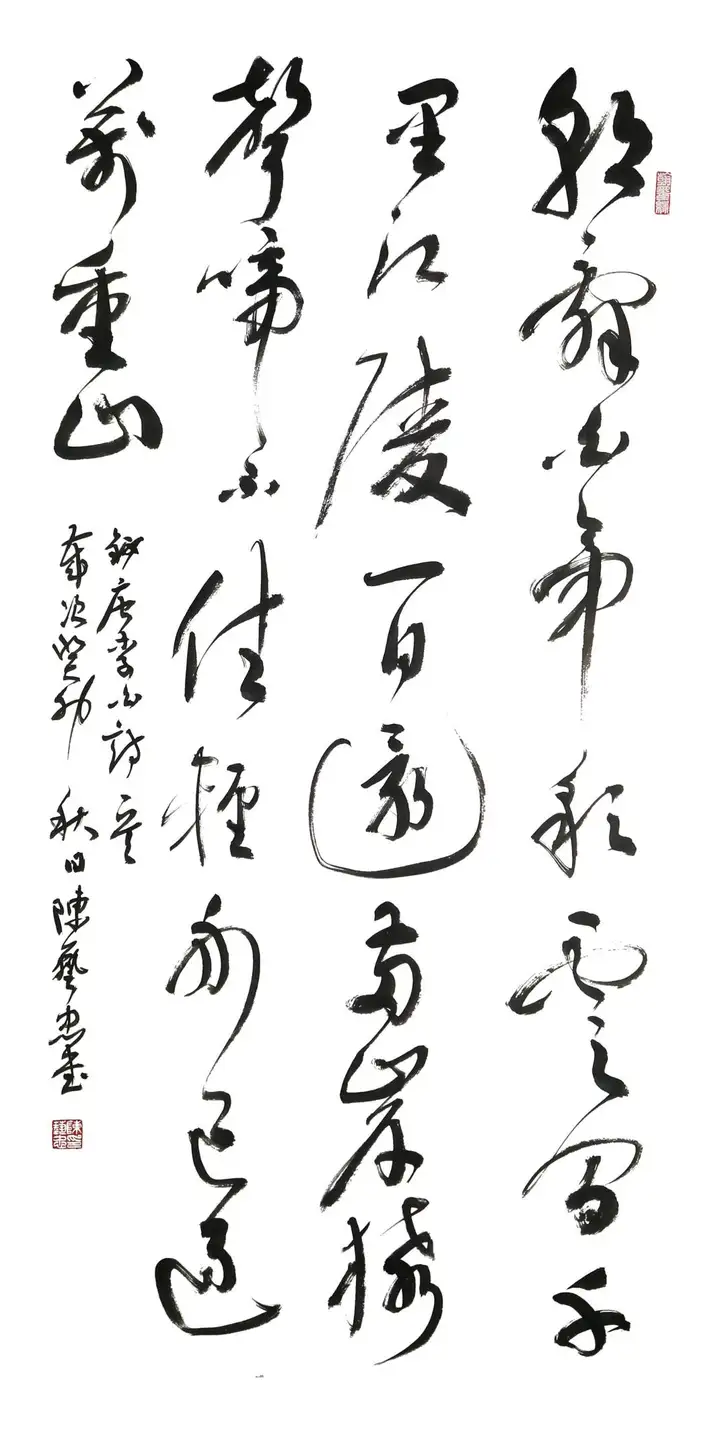 朝辭白帝彩雲間千
里江陵一日還兩岸猿
聲啼不住輕舟已過
萬重山
唐李白詩
歲次癸卯秋日陳藝忠書